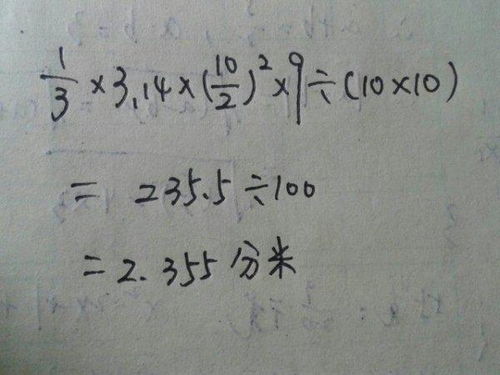 1/3 × 3.14 × (10/2)² × 9 ÷ (10 × 10)
= 235.5 ÷ 100
= 2.355 分米